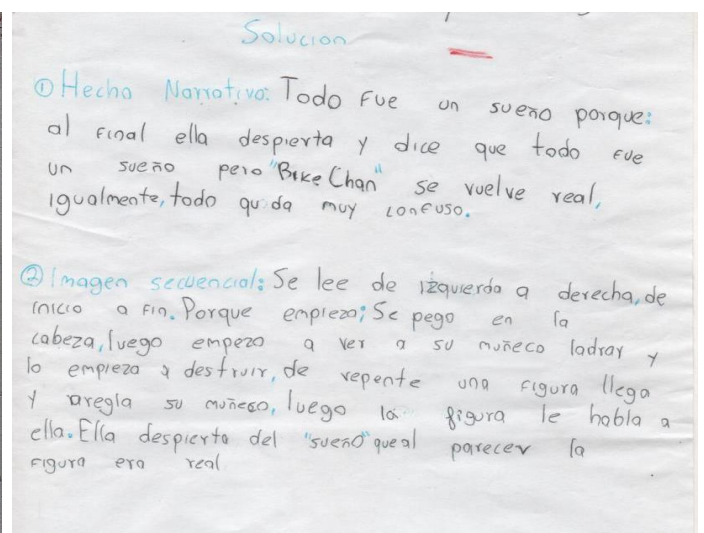 Solucion
① Hecho Narrativo: Todo fue un sueño porque:
al final ella despierta y dice que todo fue
un sueño pero "Bike Chan" se vuelve real,
igualmente, todo queda muy confuso.
② Imagen secuencial: Se lee de izquierda a derecha, de
inicio a fin. Porque empieza; Se pego en la
cabeza, luego empezo a ver a su muñeco ladrar y
lo empieza a destruir, de repente una figura llega
y aregla su muñeco, luego la figura le habla a
ella. Ella despierta del "sueño" que al parecer la
figura era real